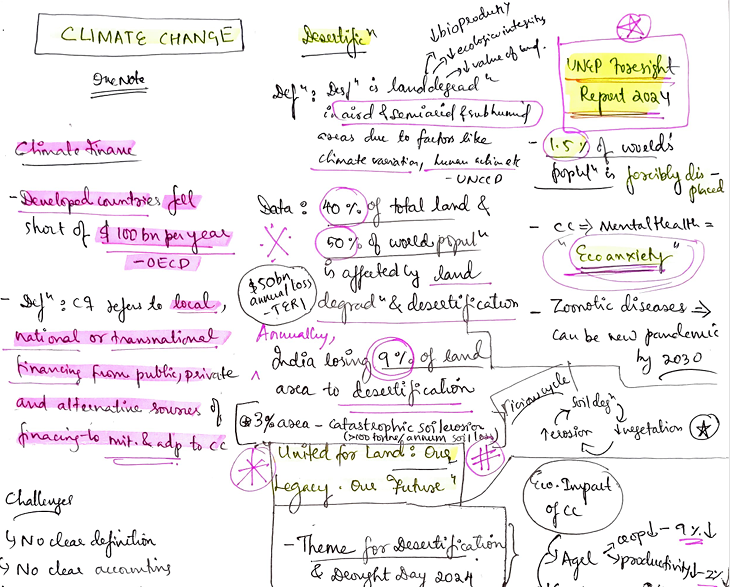 CLIMATE CHANGE
OneNote
Climate Finance
- Developed countries fell
short of $100 bn per year
- OECD
- Defⁿ : CF refers to local,
national or transnational
financing from public, private
and alternative sources of
financing to mit. & adp to CC
Challenges
↳ No clear definition
↳ No clear accounting
Desertificⁿ
↓ bioproductivity
↓ ecological integrity
↓ value of land.
Defⁿ : Desfⁿ is land degradⁿ
in arid & semiarid & subhumid
areas due to factors like
climate variation, human
- UNCCD
Data : 40% of total land &
50% of world populⁿ
is affected by land
degradⁿ & desertification
$50bn,
annual loss
- TERI
Annually,
India losing 9% of land
area to desertification
3% area - catastrophic soil erosion
(>100 tonne/annum soil loss)
United for Land : Our
Legacy . Our Future"
- Theme for Desertification
& Drought Day 2024
UNEP Foresight
Report 2024
- 1.5% of world's
populⁿ is forcibly dis-
placed
- CC ⇒ Mental Health =
"Eco anxiety"
- Zoonotic diseases ⇒
can be new pandemic
by 2030
Vicious cycle
soil degⁿ
↑ erosion
↓ vegetation
Eco. Impact
of CC
Agrl
crop↓ - 9%↓
productivity↓ - 2%↓